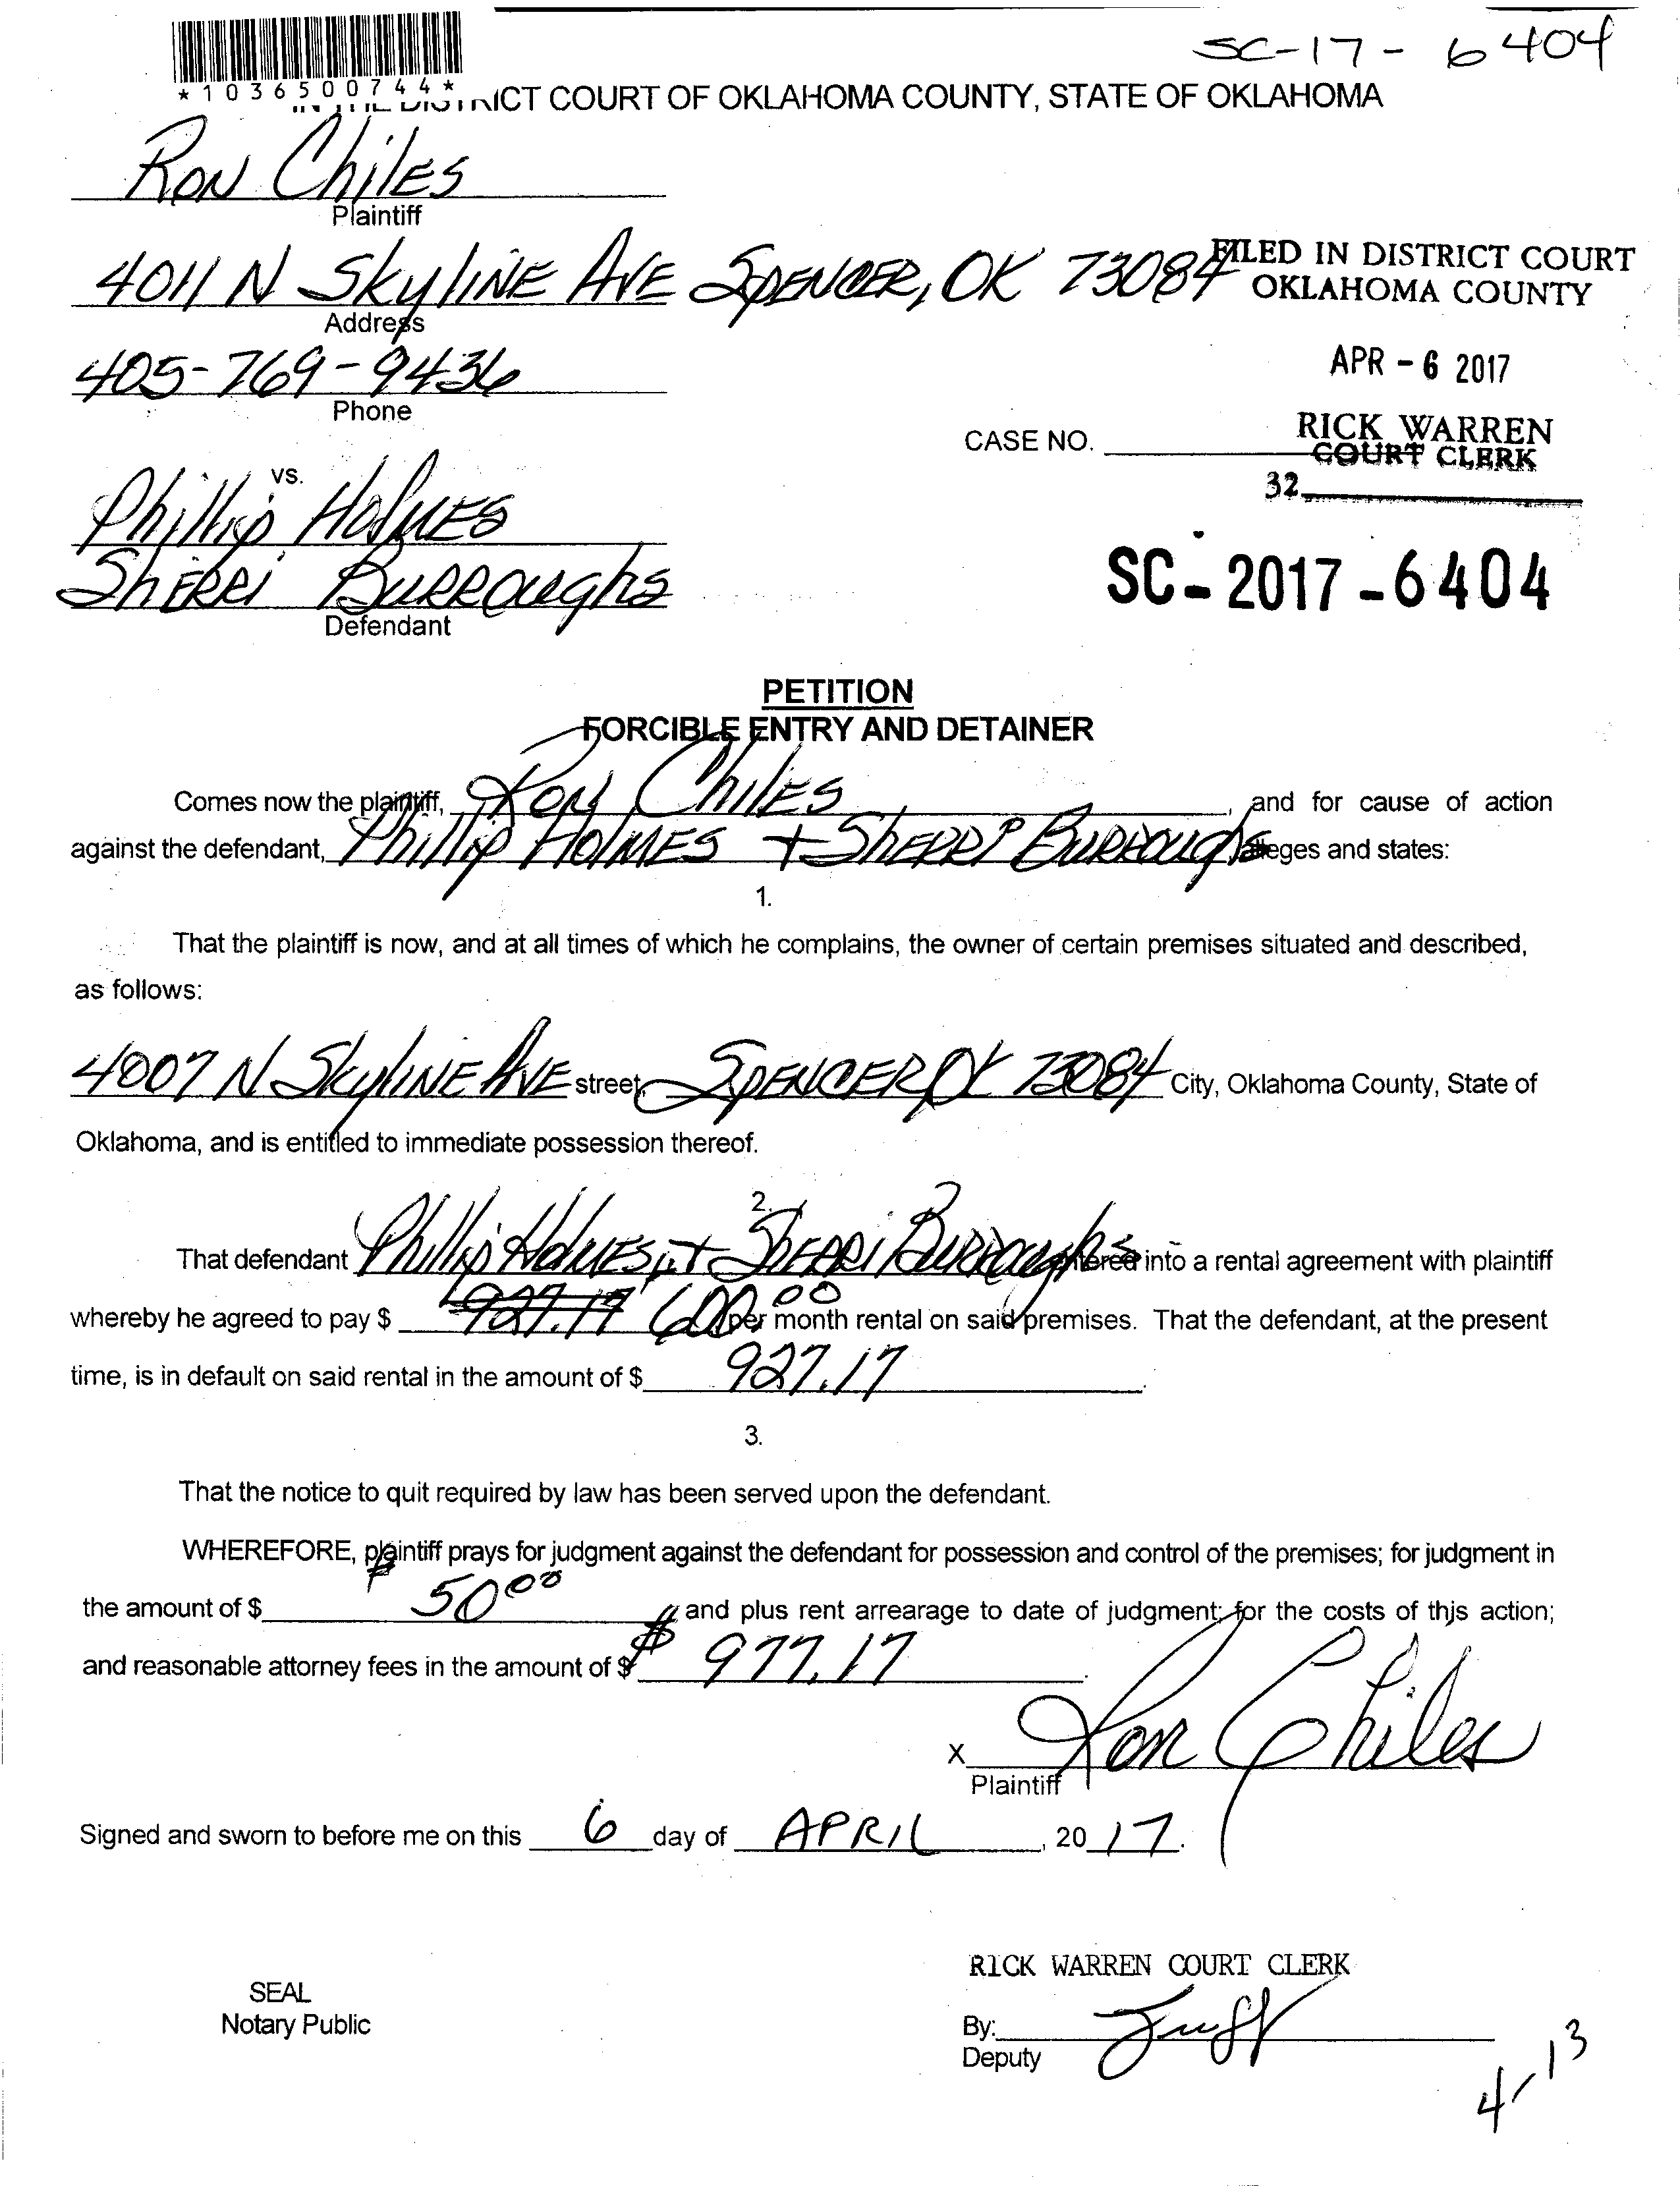 SC-17-6404
*1036500744*
DISTRICT COURT OF OKLAHOMA COUNTY, STATE OF OKLAHOMA
RON ChilES
Plaintiff
4011 N SkyliNE AVE SPENCER, OK 73084
FILED IN DISTRICT COURT
OKLAHOMA COUNTY
Address
405-769-9436
APR - 6 2017
Phone
RICK WARREN
COURT CLERK
CASE NO.
32
vs.
Phillip HolMES
ShERRi BURROughs
Defendant
SC-2017-6404
PETITION
FORCIBLE ENTRY AND DETAINER
Comes now the plaintiff, RON ChilES, and for cause of action
against the defendant, Phillip HolMES + ShERRI BURROughs alleges and states:
1.
That the plaintiff is now, and at all times of which he complains, the owner of certain premises situated and described,
as follows:
4007 N SkyliNE AVE street, SPENCER OK 73084 City, Oklahoma County, State of
Oklahoma, and is entitled to immediate possession thereof.
2.
That defendant Phillip HolMES + ShERRi BURROughs entered into a rental agreement with plaintiff
whereby he agreed to pay $ 927.17 600.00 per month rental on said premises. That the defendant, at the present
time, is in default on said rental in the amount of $ 927.17.
3.
That the notice to quit required by law has been served upon the defendant.
WHEREFORE, plaintiff prays for judgment against the defendant for possession and control of the premises; for judgment in
the amount of $ 50.00 and plus rent arrearage to date of judgment; for the costs of this action;
and reasonable attorney fees in the amount of $ $ 977.17.
X Ron Chiles
Plaintiff
Signed and sworn to before me on this 6 day of APRIL, 2017.
RICK WARREN COURT CLERK
SEAL
Notary Public
By:
Deputy
4-13